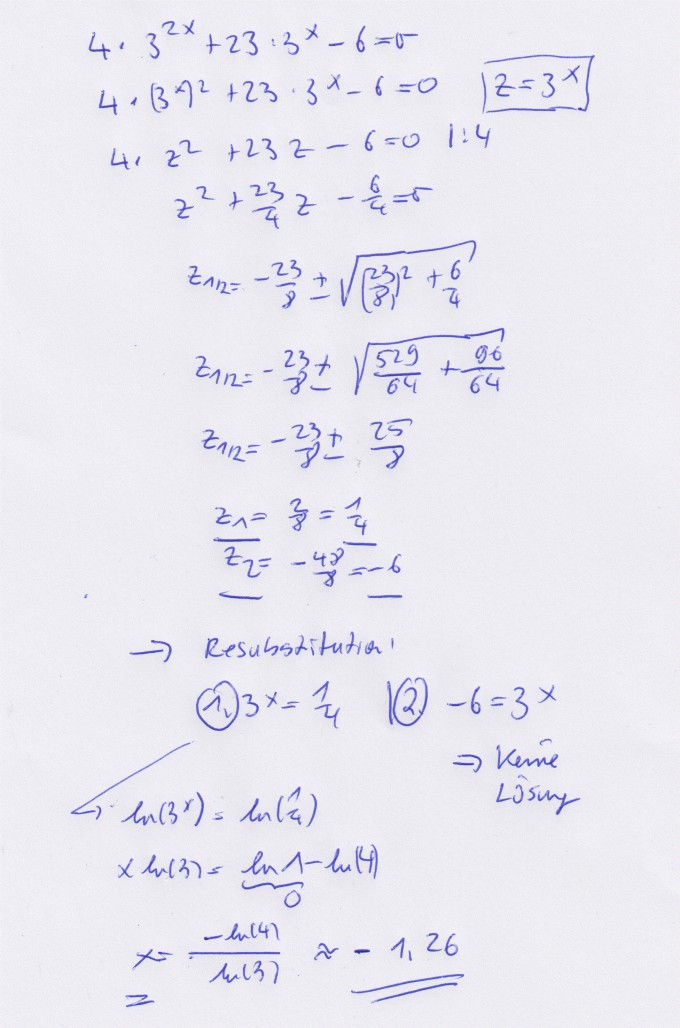 4 · 3^2x + 23 · 3^x - 6 = 0
4 · (3^x)^2 + 23 · 3^x - 6 = 0 z = 3^x
4 · z^2 + 23 z - 6 = 0 |:4
z^2 + 23/4 z - 6/4 = 0
z1/2 = - 23/8 ± √((23/8)^2 + 6/4)
z1/2 = - 23/8 ± √(529/64 + 96/64)
z1/2 = - 23/8 ± 25/8
z1 = 2/8 = 1/4
z2 = - 48/8 = - 6
→ Resubstitution:
1. 3^x = 1/4 | 2. -6 = 3^x
⇒ Keine
Lösung
→ ln(3^x) = ln(1/4)
x ln(3) = ln 1 - ln(4)
0
x = -ln(4)/ln(3) ≈ - 1,26